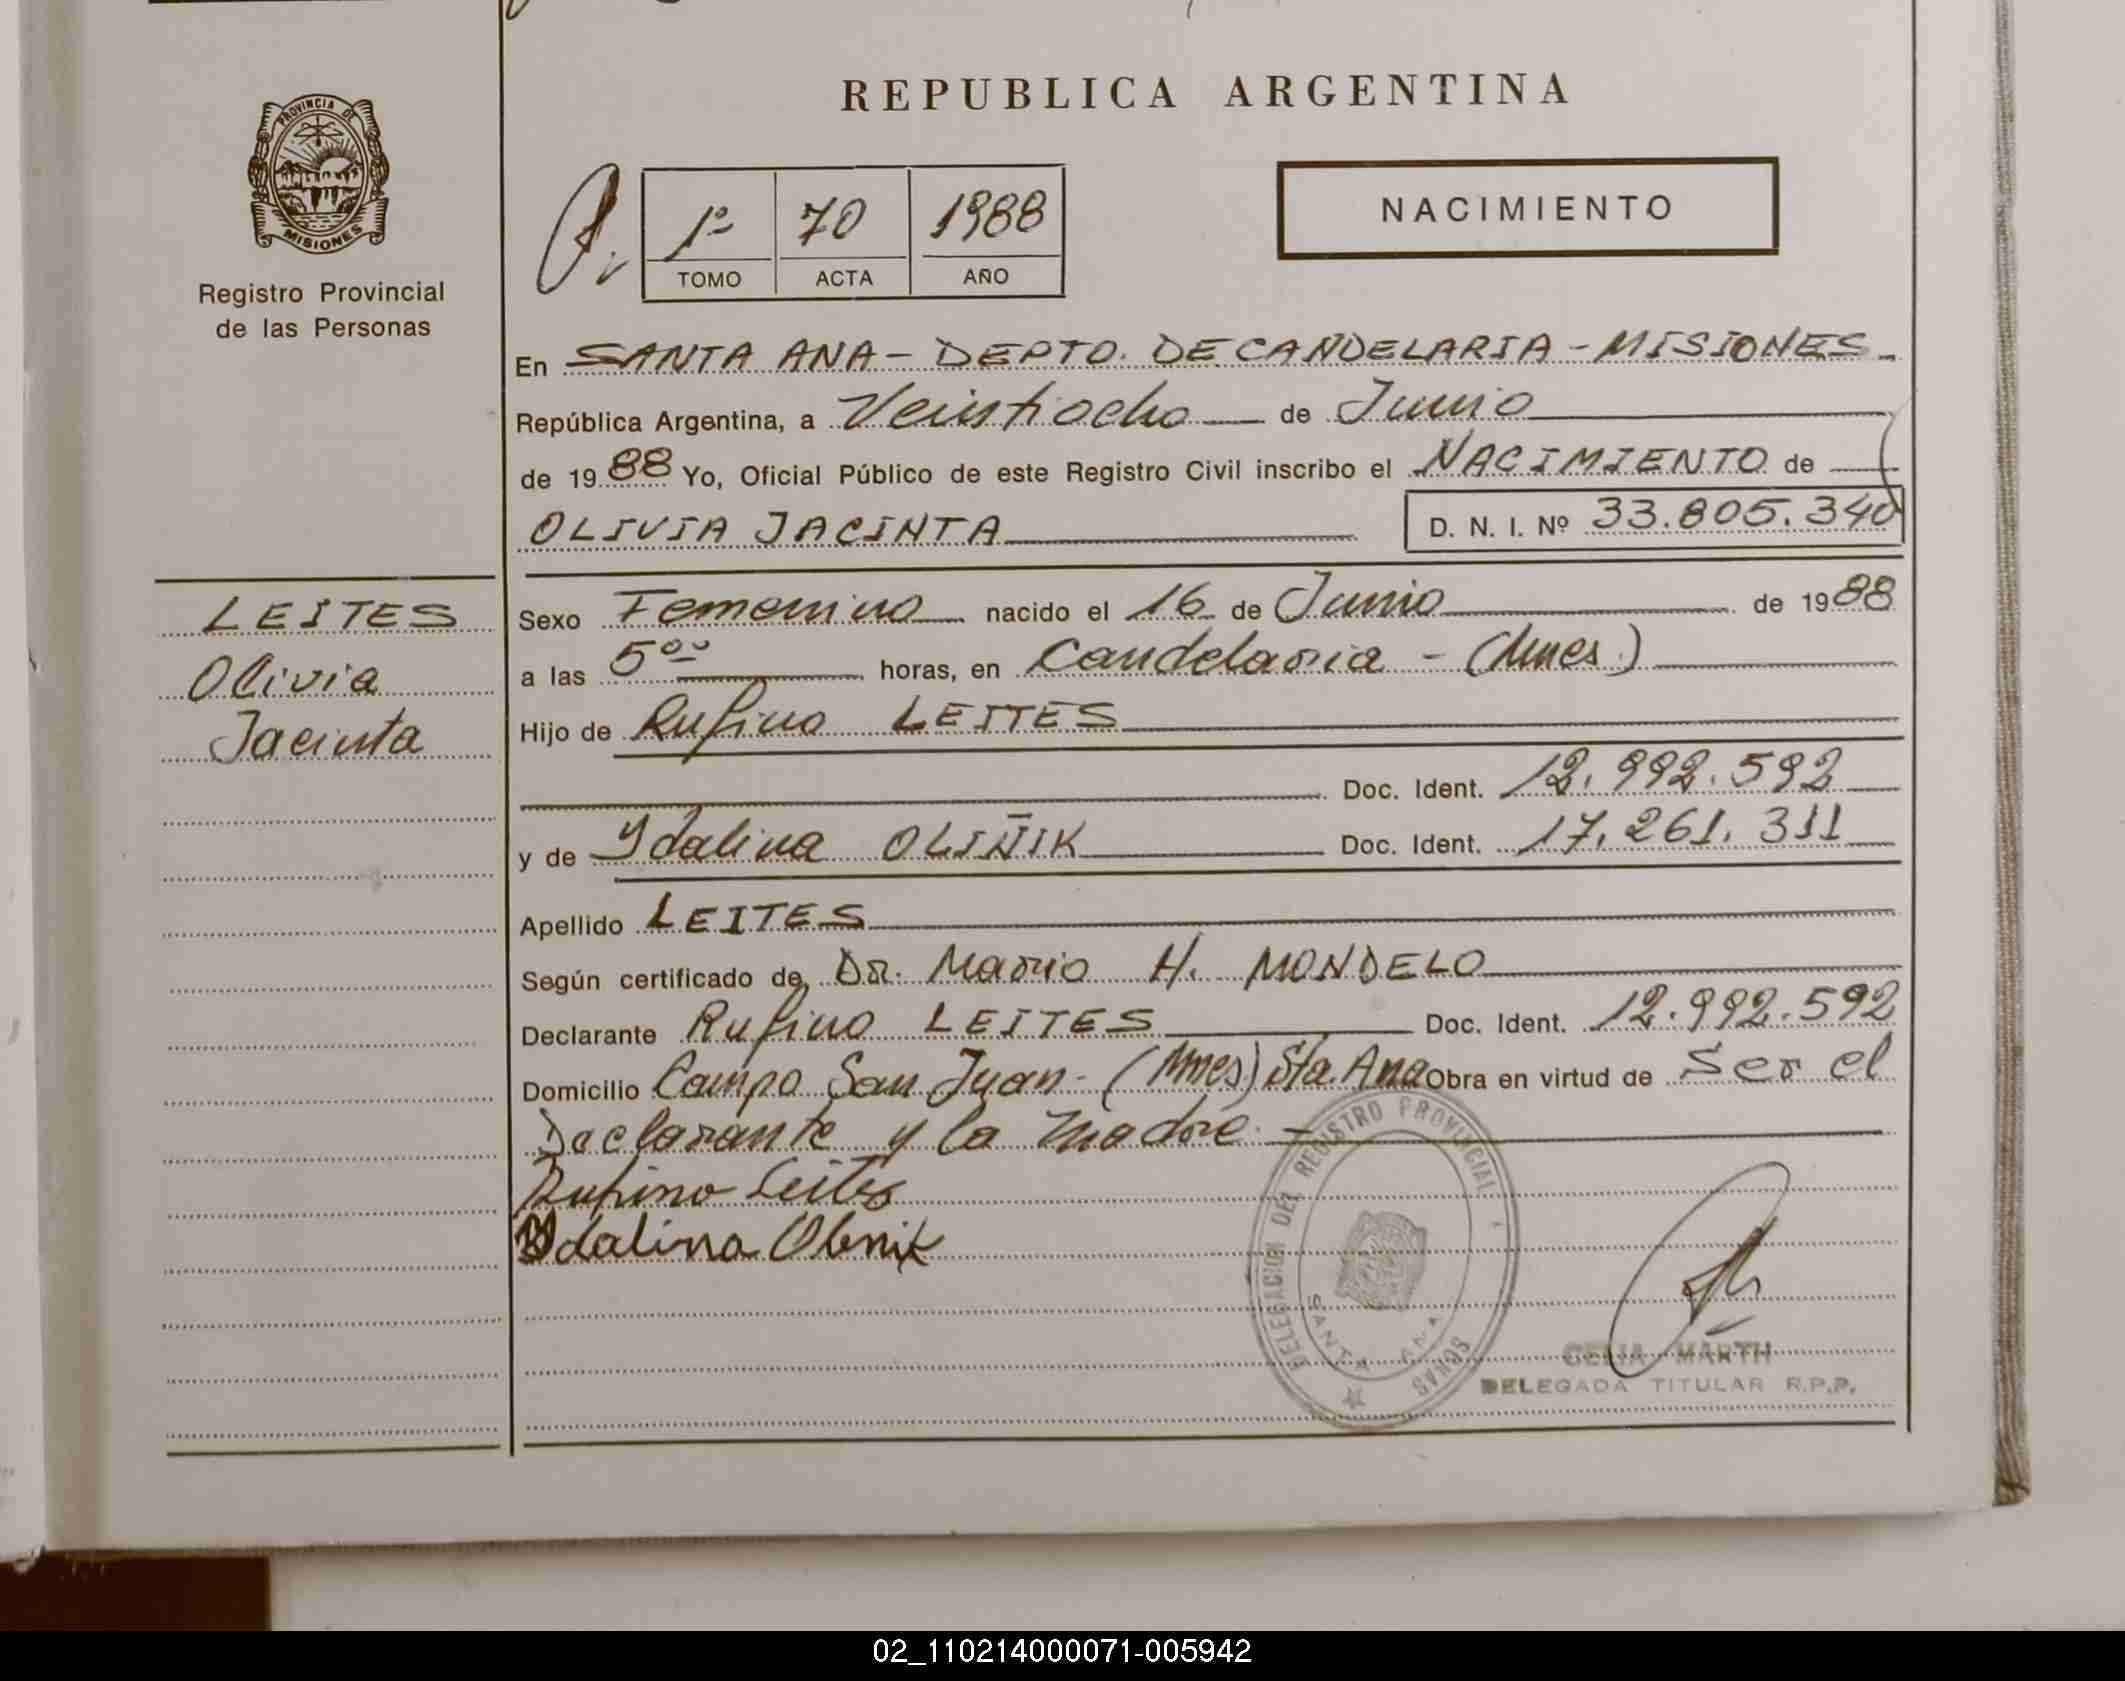 REPUBLICA ARGENTINA
PROVINCIA DE
MISIONES
Registro Provincial
de las Personas
1º 70 1988
TOMO ACTA AÑO
NACIMIENTO
En SANTA ANA - DEPTO. DE CANDELARIA - MISIONES
República Argentina, a Veintiocho de Junio
de 1988 Yo, Oficial Público de este Registro Civil inscribo el NACIMIENTO de
OLIVIA JACINTA D. N. I. Nº 33.805.340
LEITES
Olivia
Jacinta
Sexo Femenino nacido el 16 de Junio de 1988
a las 5 00 horas, en Candelaria - (Mnes.)
Hijo de Rufino LEITES
Doc. Ident. 12.992.592
y de Ydalina OLIÑIK Doc. Ident. 17.261.311
Apellido LEITES
Según certificado de Dr. Mario H. MONDELO
Declarante Rufino LEITES Doc. Ident. 12.992.592
Domicilio Campo San Juan - (Mnes) Sta Ana Obra en virtud de Ser el
Declarante y la madre. -
Rufino Leites
Ydalina Olenik
DELEGACION DEL REGISTRO PROVINCIAL
SANTA ANA
CELIA MARTH
DELEGADA TITULAR R.P.P.
02_110214000071-005942